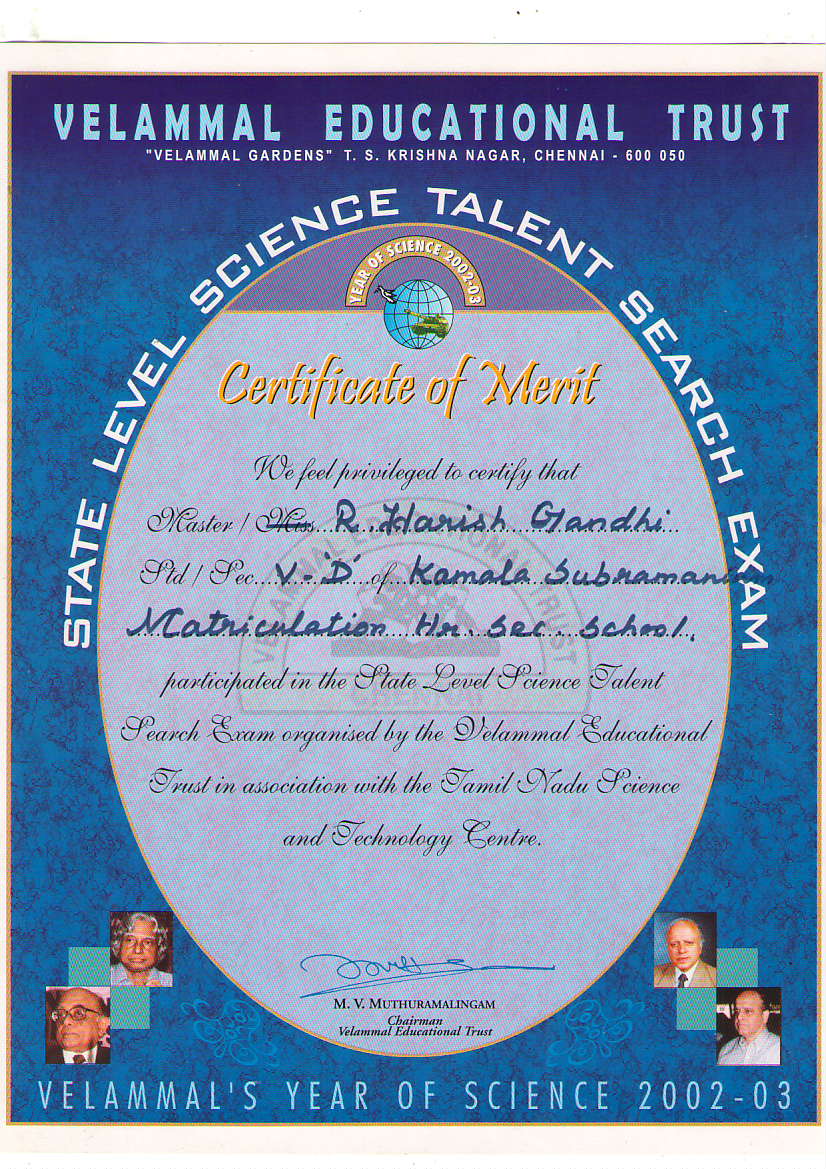 VELAMMAL EDUCATIONAL TRUST
"VELAMMAL GARDENS" T. S. KRISHNA NAGAR, CHENNAI - 600 050
STATE LEVEL SCIENCE TALENT SEARCH EXAM
YEAR OF SCIENCE 2002-03
Certificate of Merit
We feel privileged to certify that
Master / Miss R. Harish Gandhi
Std / Sec V-'D' of Kamala Subramaniam
Matriculation Hr. Sec. School.
participated in the State Level Science Talent
Search Exam organised by the Velammal Educational
Trust in association with the Tamil Nadu Science
and Technology Centre.
VELAMMAL EDUCATIONAL TRUST
M. V. MUTHURAMALINGAM
Chairman
Velammal Educational Trust
VELAMMAL'S YEAR OF SCIENCE 2002-03